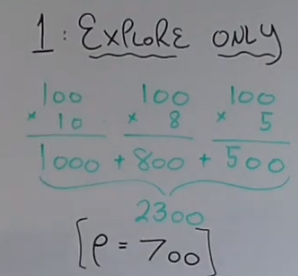 1: EXPLORE ONLY
100 100 100
× 10 × 8 × 5
1000 + 800 + 500
2300
[ρ = 700]